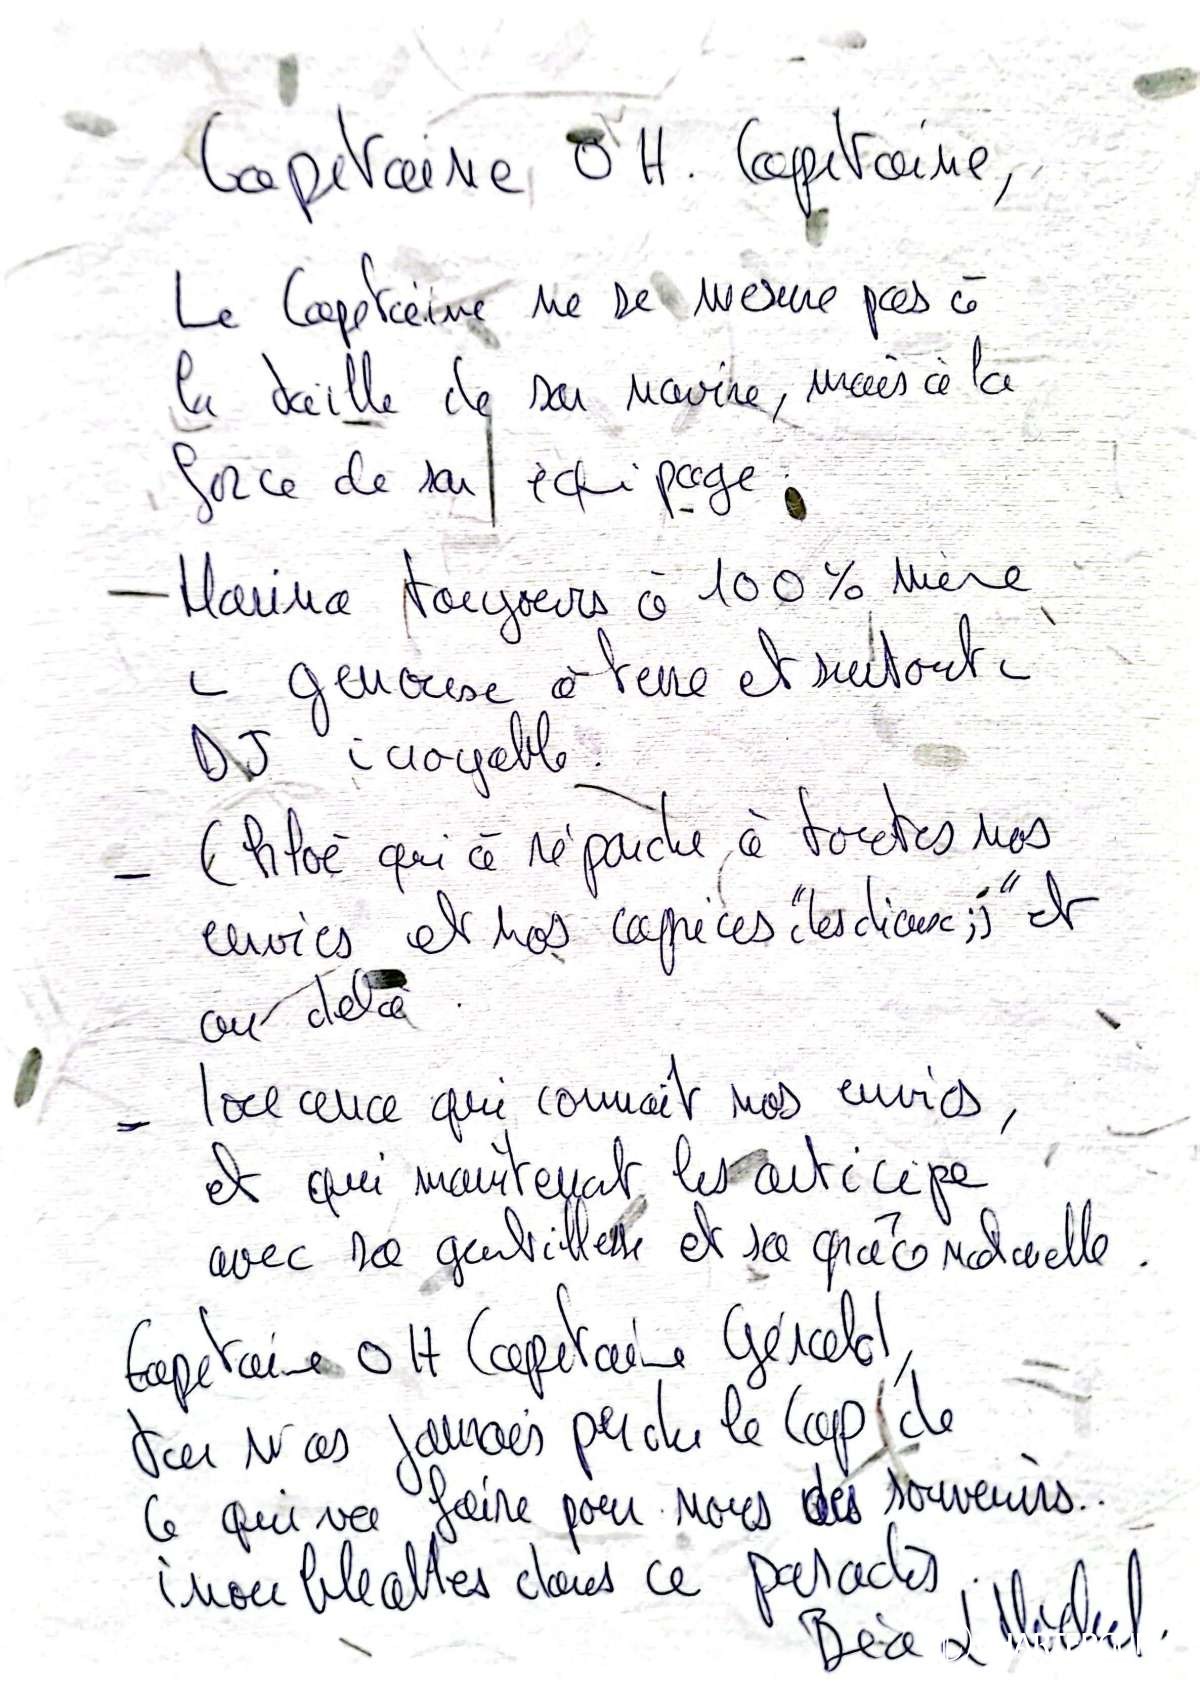 Capitaine OH. Capitaine,
Le Capitaine ne se mesure pas à
la taille de son navire, mais à la
force de son équipage.
- Marina toujours à 100% Mère
genouse à terre et surtout
DJ incroyable.
- Chloé qui à répondu à toutes nos
envies et nos caprices "les dieux ;;" et
au delà.
- qui connaît nos envies,
et qui maintenat les anticipe
avec sa gentillesse et sa grâce naturelle.
Capitaine OH Capitaine Gérald,
tu n'as jamais perdu le Cap de
ce qui va faire pour nous des souvenirs..
inoubliables dans ce paradis.
Béa & Michel.